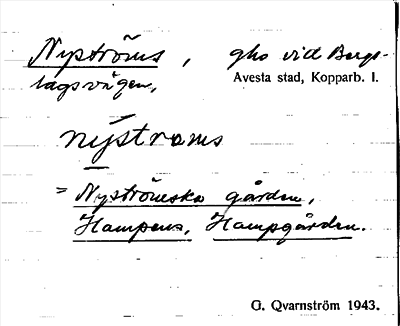 Nyströms, gho vid Bergs-
lagsvägen,
Avesta stad, Kopparb. l.
nýstroms
= Nyströmska gården,
Hampens, Hampgården.
G. Qvarnström 1943.